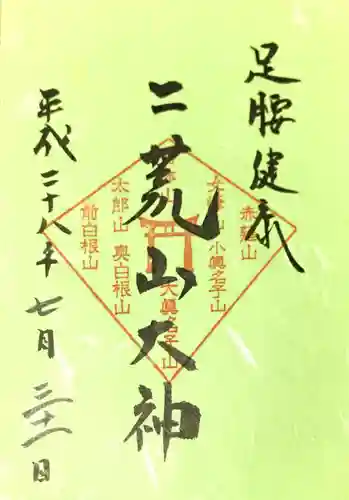 足腰健康
二荒山大神
平成二十八年
七月三十一日
赤薙山
女峰山 小真名子山
大真名子山
太郎山 奥白根山
前白根山